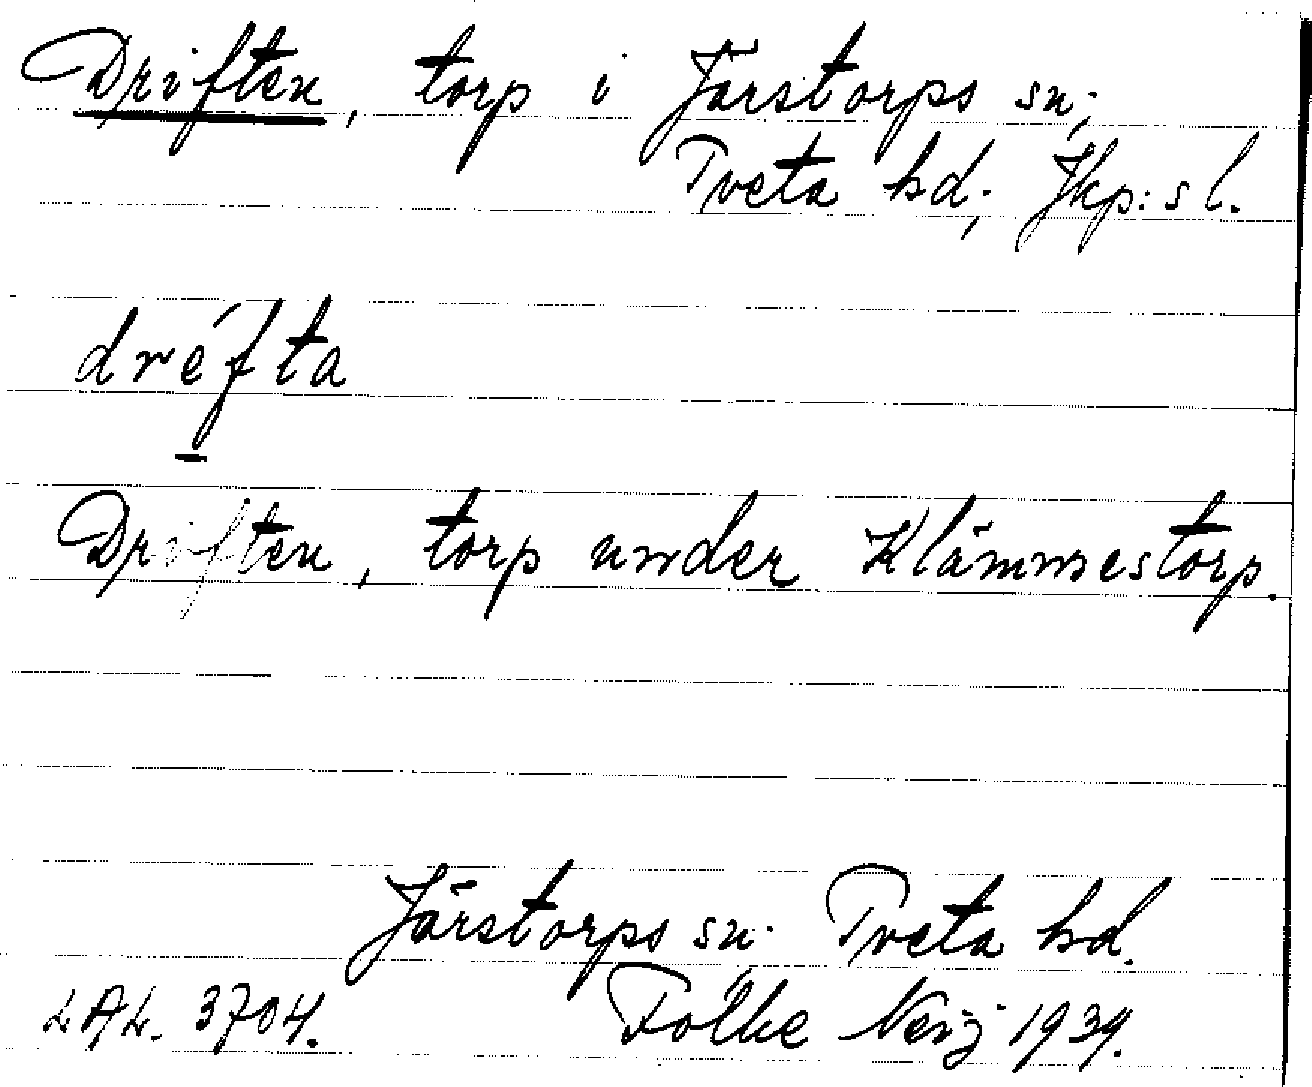 Driften, torp i Järstorps sn;
Tveta hd; Jkp:s l.
dréfta
Driften, torp under Klämmestorp.
Järstorps sn. Tveta hd.
LAL. 3704. Folke 1939.